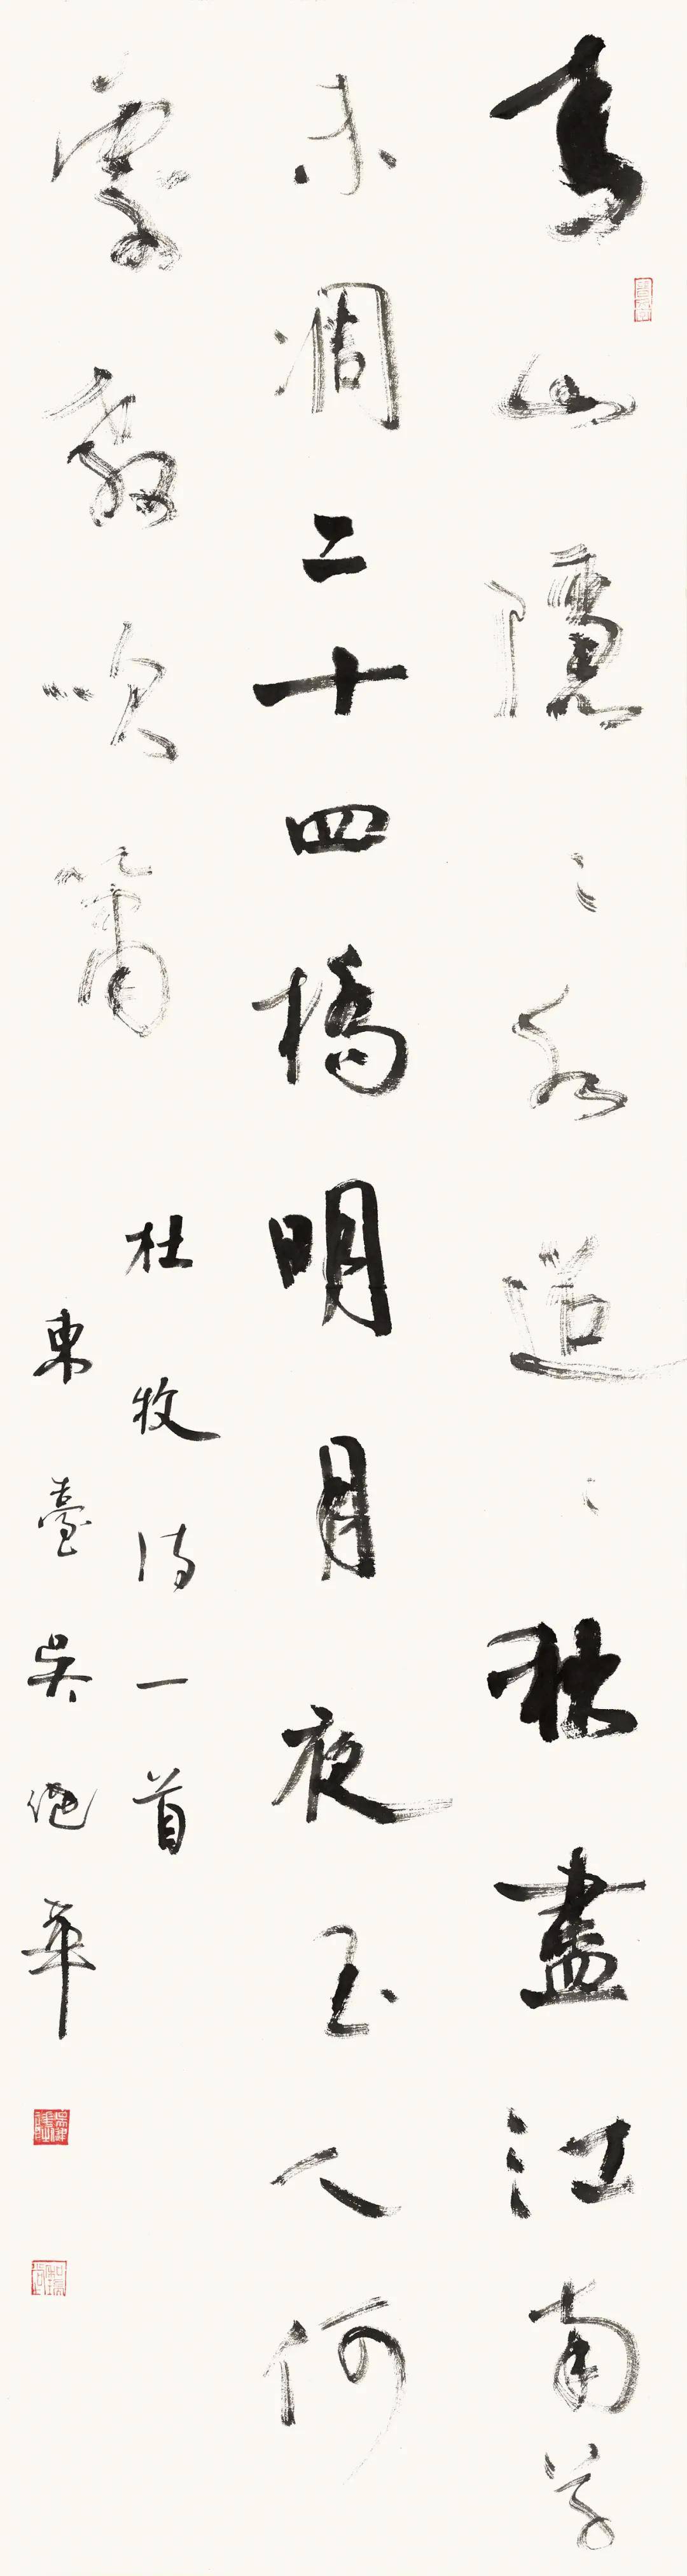 青山隱〻水迢〻秋盡江南草
未凋二十四橋明月夜玉人何
處教吹簫
杜牧詩一首
東臺吳